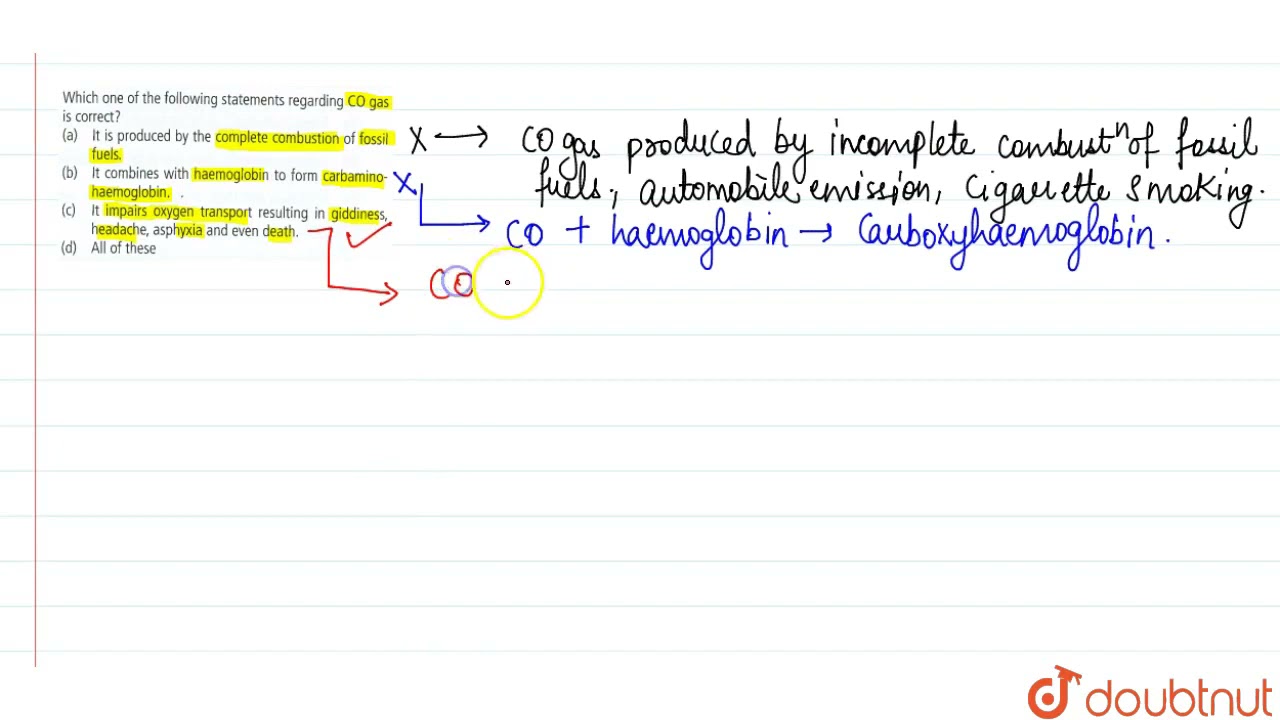 Which one of the following statements regarding CO gas
is correct?
(a) It is produced by the complete combustion of fossil
fuels.
(b) It combines with haemoglobin to form carbamino-
haemoglobin. .
(c) It impairs oxygen transport resulting in giddiness,
headache, asphyxia and even death.
(d) All of these
X → CO gas produced by incomplete combustⁿ of fossil
fuels, automobile emission, Cigarette smoking.
X → CO + haemoglobin → Carboxyhaemoglobin.
✓ → CO
doubtnut